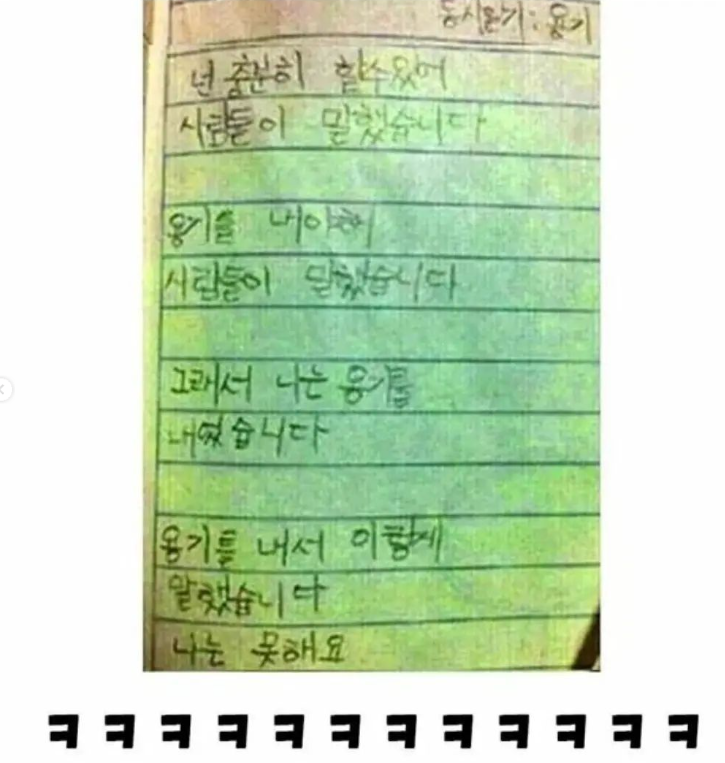 동시쓰기:용기
넌 충분히 할수있어
사람들이 말했습니다
용기를 내야해
사람들이 말했습니다
그래서 나는 용기를
내었습니다
용기를 내서 이렇게
말했습니다
나는 못해요
ㅋㅋㅋㅋㅋㅋㅋㅋㅋㅋㅋㅋ